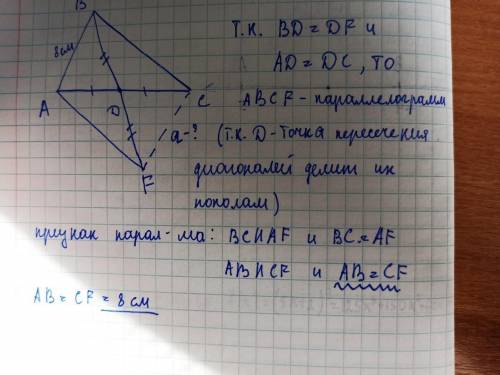 B
Т.К. BD = DF и
8см
AD = DC, ТО
A
D
C
ABCF - параллелограмм
a-? (Т.К. D - точка пересечения
F
диагоналей делит их
пополам)
признак парал-ма: BC II AF и BC = AF
AB II CF и AB = CF
AB = CF = 8 см